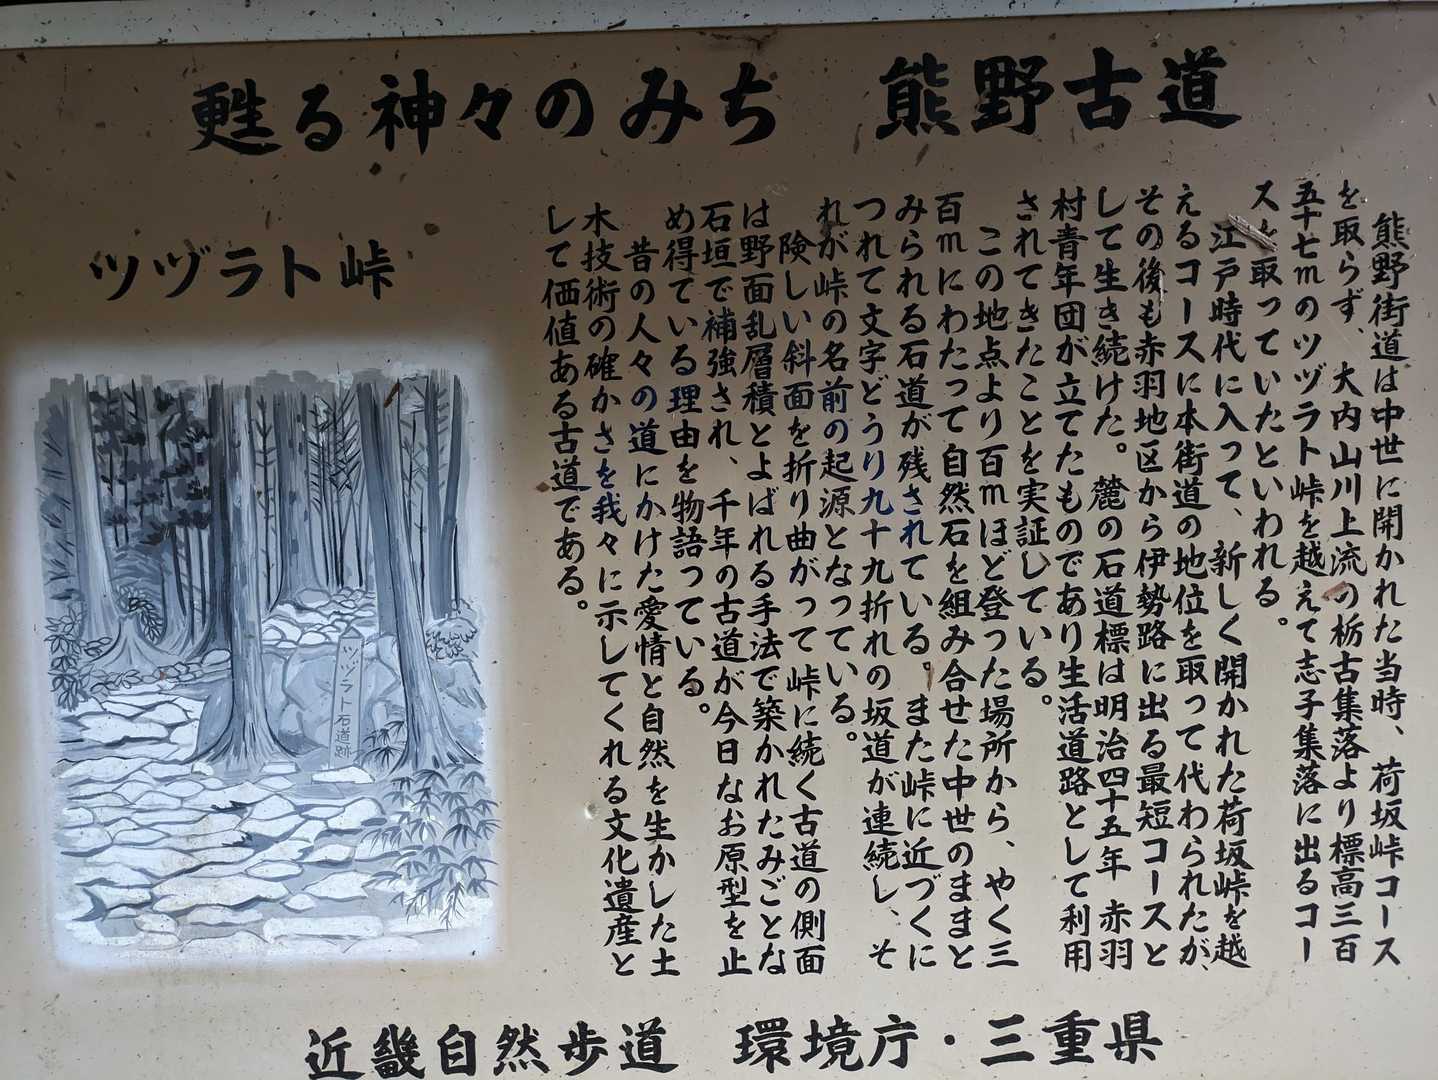 甦る神々のみち 熊野古道
熊野街道は中世に開かれた当時、荷坂峠コース
を取らず、大内山川上流の栃古集落より標高三百
五十七mのツヅラト峠を越えて志子集落に出るコー
スを取っていたといわれる。
江戸時代に入って、新しく開かれた荷坂峠を越
えるコースに本街道の地位を取って代わられたが、
その後も赤羽地区から伊勢路に出る最短コースと
して生き続けた。麓の石道標は明治四十五年 赤羽
村青年団が立てたものであり生活道路として利用
されてきたことを実証している。
この地点より百mほど登った場所から、やく三
百mにわたって自然石を組み合せた中世のままと
みられる石道が残されている。また峠に近づくに
つれて文字どうり九十九折れの坂道が連続し、そ
れが峠の名前の起源となっている。
険しい斜面を折り曲がって峠に続く古道の側面
は野面乱層積とよばれる手法で築かれたみごとな
石垣で補強され、千年の古道が今日なお原型を止
め得ている理由を物語っている。
昔の人々の道にかけた愛情と自然を生かした土
木技術の確かさを我々に示してくれる文化遺産と
して価値ある古道である。
ツヅラト峠
ツヅラト石道跡
近畿自然歩道 環境庁・三重県